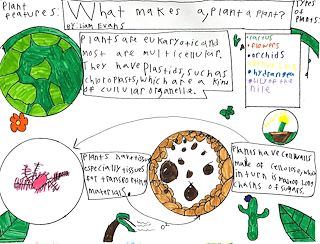 Plant features.
What makes a plant a plant?
By: Liam Evans
Types of plants:
Plants are eukaryotic and
most are multicellular.
They have plastids, such as
choroplasts, which are a kind
of cullular organelle.
•cactus
•flowers
•orchids
•hydrangea
•Lily of the
nile
Plants have tissue
especially tissues
for transporting
materials.
Plants have cell walls
made of celulose, which
in turn is made of long
chains of sugars.